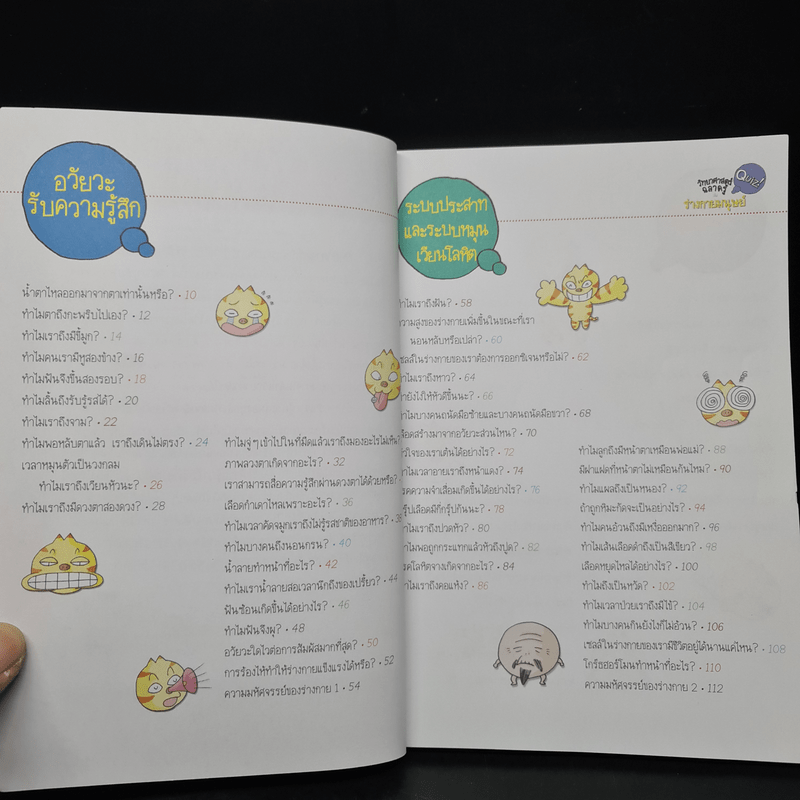 อวัยวะ
รับความรู้สึก
น้ำตาไหลออกมาจากตาเท่านั้นหรือ? • 10
ทำไมตาถึงกะพริบไปเอง? • 12
ทำไมเราถึงมีขี้มูก? • 14
ทำไมคนเรามีหูสองข้าง? • 16
ทำไมฟันจึงขึ้นสองรอบ? • 18
ทำไมลิ้นถึงรับรู้รสได้? • 20
ทำไมเราถึงจาม? • 22
ทำไมพอหลับตาแล้ว เราถึงเดินไม่ตรง? • 24
เวลาหมุนตัวเป็นวงกลม
ทำไมเราถึงเวียนหัวนะ? • 26
ทำไมเราถึงมีดวงตาสองดวง? • 28
ทำไมจู่ๆเข้าไปในที่มืดแล้วเราถึงมองอะไรไม่เห็น
ภาพลวงตาเกิดจากอะไร? • 32
เราสามารถสื่อความรู้สึกผ่านดวงตาได้ด้วยหรือ?
เลือดกำเดาไหลเพราะอะไร? • 36
ทำไมเวลาคัดจมูกเราถึงไม่รู้รสชาติของอาหาร? • 38
ทำไมบางคนถึงนอนกรน? • 40
น้ำลายทำหน้าที่อะไร? • 42
ทำไมเราน้ำลายสอเวลานึกถึงของเปรี้ยว? • 44
ฟันซ้อนเกิดขึ้นได้อย่างไร? • 46
ทำไมฟันจึงผุ? • 48
อวัยวะใดไวต่อการสัมผัสมากที่สุด? • 50
การร้องไห้ทำให้ร่างกายแข็งแรงได้หรือ? • 52
ความมหัศจรรย์ของร่างกาย 1 • 54
วิทยาศาสตร์
ฉลาดรู้
Quiz!
ร่างกายมนุษย์
ระบบประสาท
และระบบหมุน
เวียนโลหิต
ทำไมเราถึงฝัน? • 58
ความสูงของร่างกายเพิ่มขึ้นในขณะที่เรา
นอนหลับหรือเปล่า? • 60
เซลล์ในร่างกายของเราต้องการออกซิเจนหรือไม่? • 62
ทำไมเราถึงหาว? • 64
ทำยังไงให้หัวดีขึ้นนะ? • 66
ทำไมบางคนถนัดมือซ้ายและบางคนถนัดมือขวา? • 68
เลือดสร้างมาจากอวัยวะส่วนไหน? • 70
หัวใจของเราเต้นได้อย่างไร? • 72
ทำไมเวลาอายเราถึงหน้าแดง? • 74
โรคความจำเสื่อมเกิดขึ้นได้อย่างไร? • 76
กรุ๊ปเลือดมีกี่กรุ๊ปกันนะ? • 78
ทำไมเราถึงปวดหัว? • 80
ทำไมพอถูกกระแทกแล้วหัวถึงปูด? • 82
โรคโลหิตจางเกิดจากอะไร? • 84
ทำไมเราถึงคอแห้ง? • 86
ทำไมลูกถึงมีหน้าตาเหมือนพ่อแม่? • 88
มีฝาแฝดที่หน้าตาไม่เหมือนกันไหม? • 90
ทำไมแผลถึงเป็นหนอง? • 92
ถ้าถูกหิมะกัดจะเป็นอย่างไร? • 94
ทำไมคนอ้วนถึงมีเหงื่อออกมาก? • 96
ทำไมเส้นเลือดดำถึงเป็นสีเขียว? • 98
เลือดหยุดไหลได้อย่างไร? • 100
ทำไมถึงเป็นหวัด? • 102
ทำไมเวลาป่วยเราถึงมีไข้? • 104
ทำไมบางคนกินยังไงก็ไม่อ้วน? • 106
เซลล์ในร่างกายของเรามีชีวิตอยู่ได้นานแค่ไหน? • 108
โกร๊ธฮอร์โมนทำหน้าที่อะไร? • 110
ความมหัศจรรย์ของร่างกาย 2 • 112